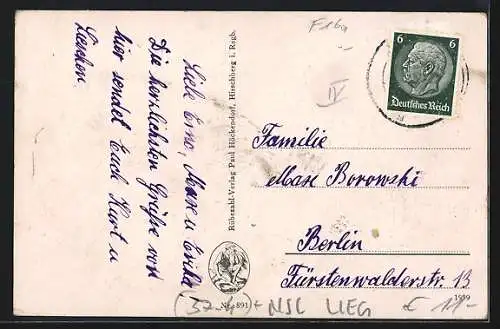 Liebe Erna, Max u Erika
Die herzlichsten Grüße von
hier sendet Euch Kurt u
Lieschen.
Rübezahl-Verlag Paul Höckendorf, Hirschberg i. Rsgb.
F 16a
IV
6 6
Deutsches Reich
Familie
Max Borowski
Berlin
Fürstenwalderstr. 13
1939
Nr. 891
NSL LIEG € 11,-